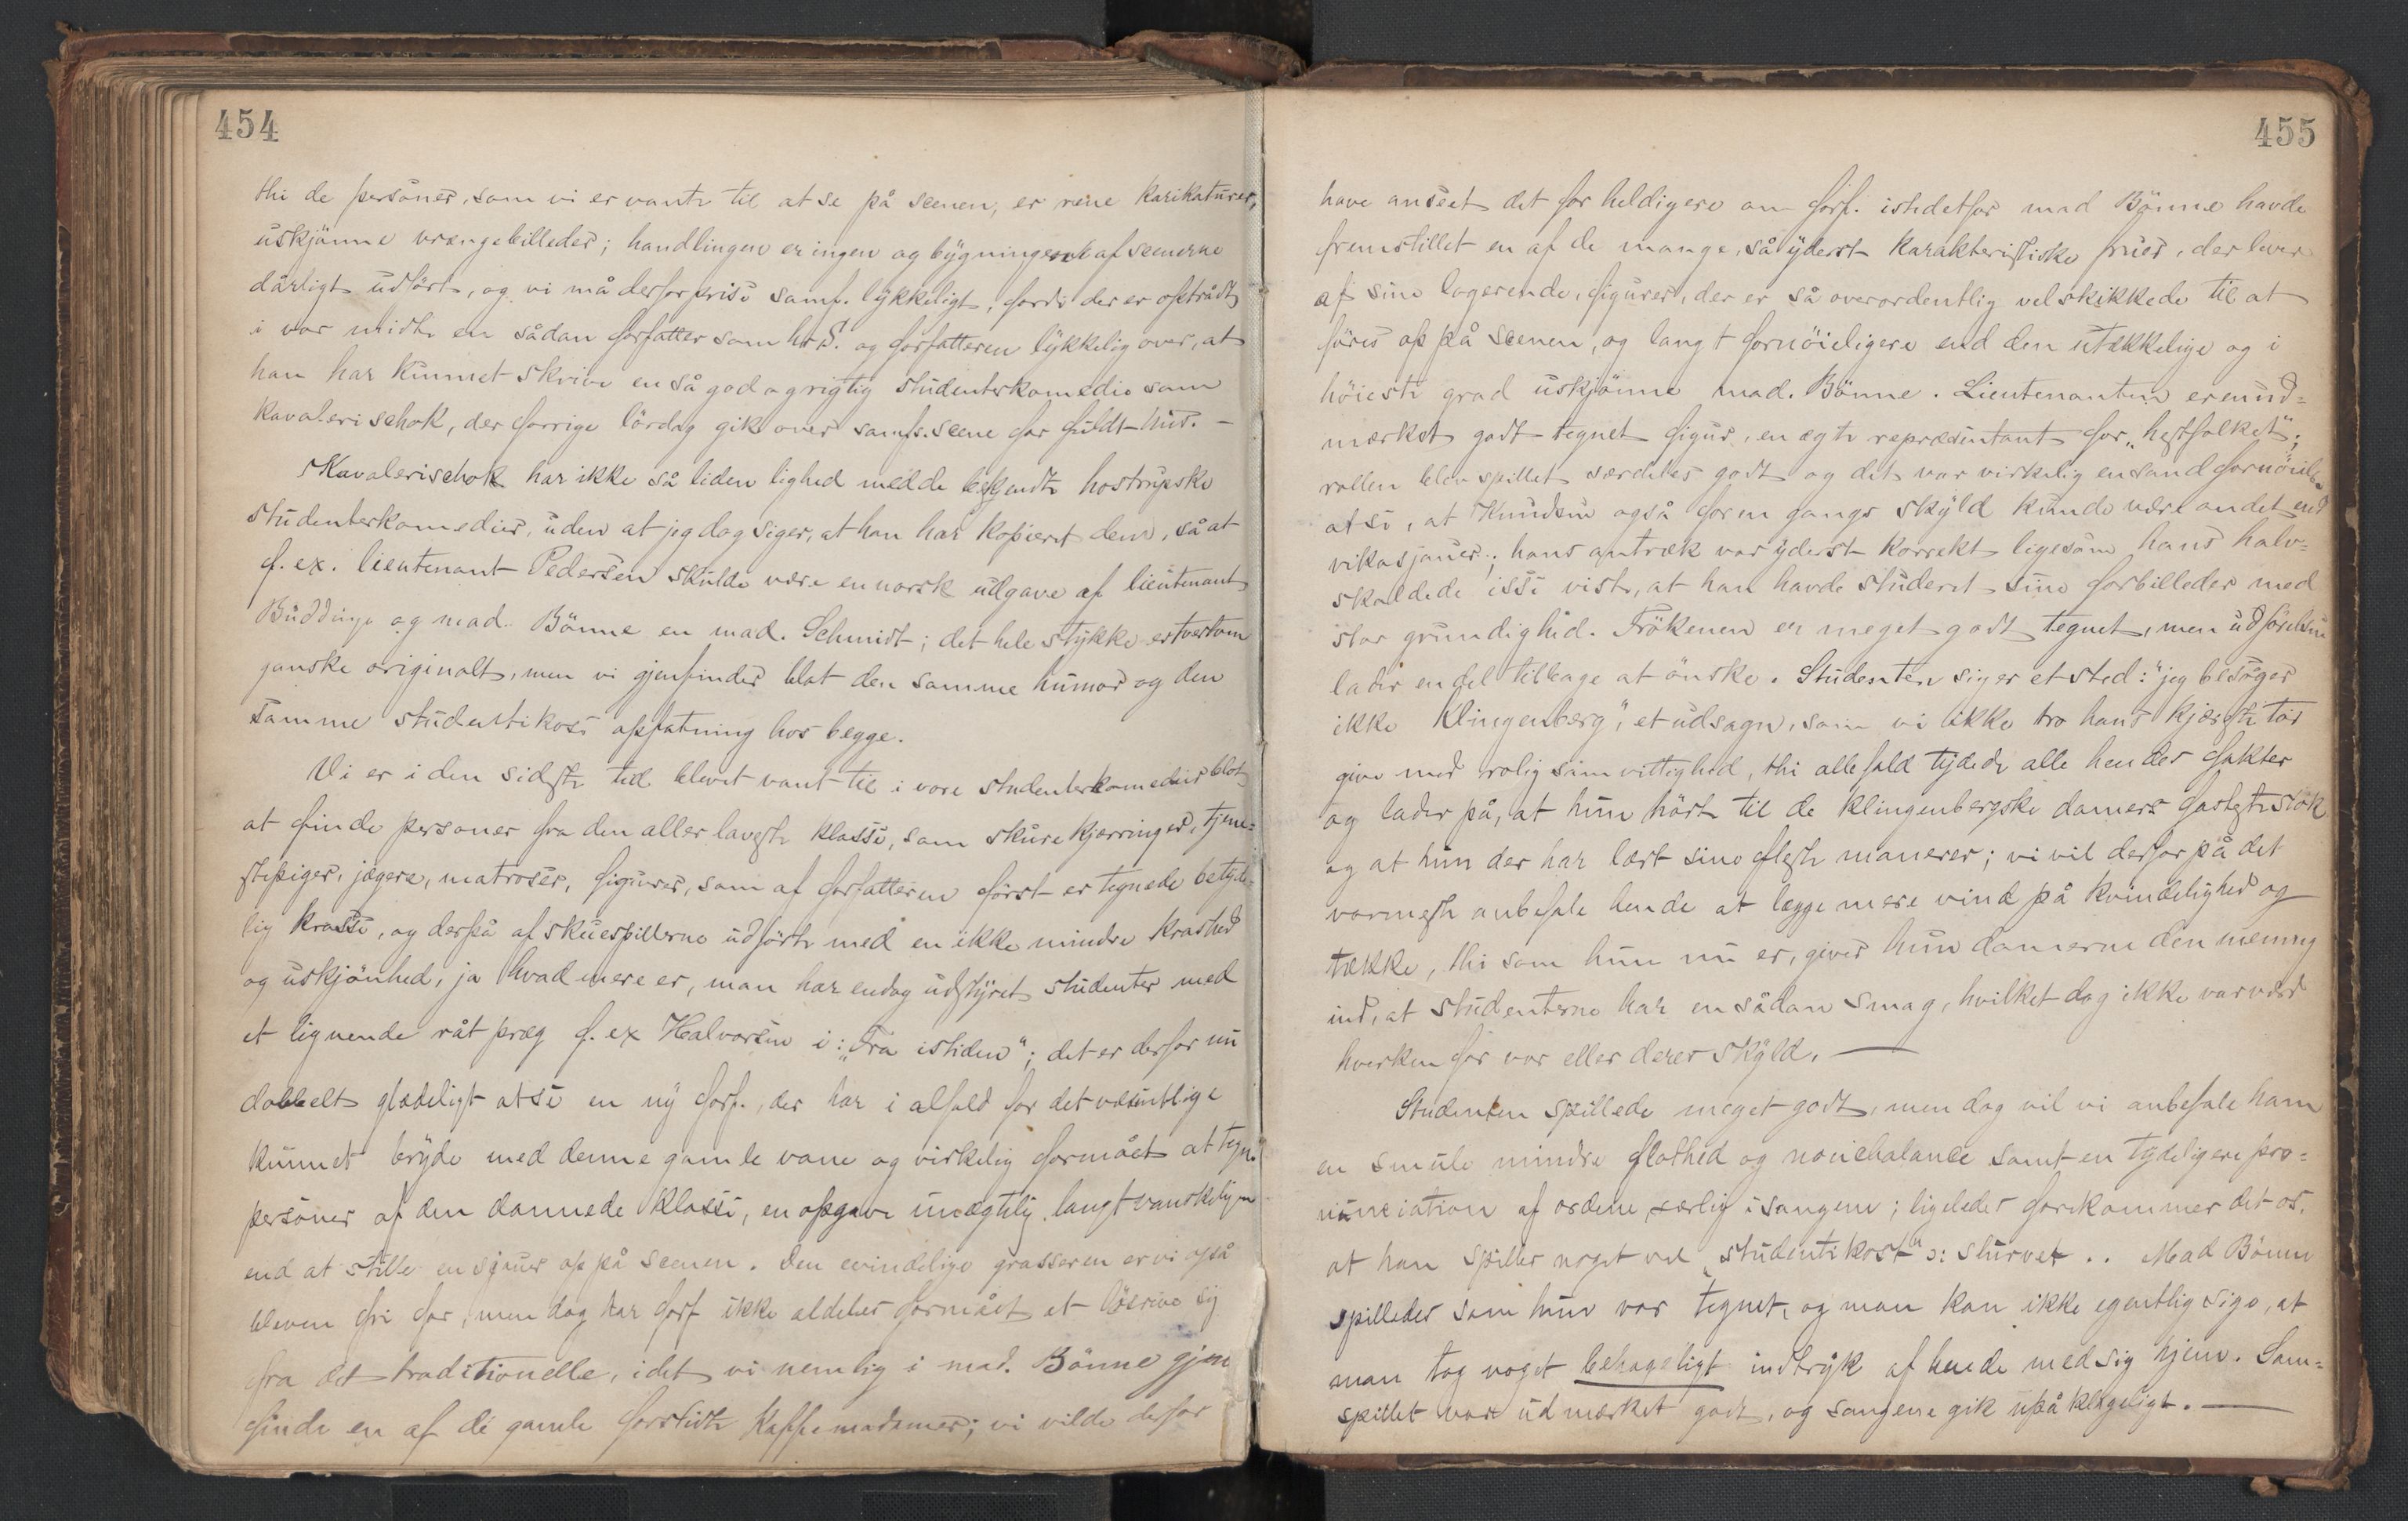 454
thi de personer, som vi er vante til at se på scenen, er rene karikaturer,
uskjønne vrængebilleder; handlingen er ingen og bygningen af scenerne
dårligt udført, og vi må derfor prise samf. lykkeligt, fordi der er optrådt
i vor midte en sådan forfatter som hr S. og forfatteren lykkelig over, at
han har kunnet skrive en så god og rigtig studenterkomedie som
Kavalerischok, der forrige lördag gik over samfs. scene for fuldt hus. —
Kavalerischok har ikke så liden lighed med de bekjendte hostrupske
studenterkomedier, uden at jeg dog siger, at han har kopieret dem, så at
f. ex. lieutenant Pedersen skulde være en norsk udgave af lieutenant
Buddinge og mad. Bönne en mad. Schmidt; det hele stykke er tvertom
ganske originalt, men vi gjenfinder blot den samme humor og den
samme studentikose opfatning hos begge.
Vi er i den sidste tid blevet vant til i vore studenterkomedier blot
at finde personer fra den aller laveste klasse, som skurekjærringer, tjene=
stepiger, jægere, matroser, figurer, som af forfatteren först er tegnede betyde=
lig krasse, og derpå af skuespillerne udförte med en ikke mindre krashed
og uskjönhed, ja hvad mere er, man har endog udstyret studenter med
et lignende råt præg f. ex Halvorsen i: „Fra istiden"; det er derfor nu
dobbelt glædeligt at se en ny forf., der har i alfald for det væsentlige
kunnet bryde med denne gamle vane og virkelig formået at tegne
personer af den dannede klasse, en opgave unægtelig langt vanskeligere
end at stille en sjauer op på scenen. Den evindelige grasseren er vi også
bleven fri for, men dog har forf ikke aldeles formået at lösrive sig
fra det traditionelle, idet vi nemlig i mad. Bönne gjen
finde en af de gamle forslidte kaffemadamer; vi vilde derfor
455
have anseet det for heldigere om forf. istedetfor mad Bönne havde
fremstillet en af de mange, så yderst karakteristiske fruer, der lever
af sine logerende, figurer, der er så overordentlig vel skikkede til at
föres op på scenen, og langt fornöieligere end den utækkelige og i
höieste grad uskjönne mad. Bönne. Lieutenanten er en ud=
mærket godt tegnet figur, en ægte repræsentant for „hestfolket";
rollen blev spillet særdeles godt og det var virkelig en sand fornöielse
at se, at Knudsen også for en gangs skyld kunde være andet end
vikasjauer; hans antræk var yderst korrekt ligesom hans halv=
skaldede isse viste, at han havde studeret sine forbilleder med
stor grundighed. Frökenen er meget godt tegnet, men udförelsen
lader en del tilbage at önske. Studenten siger et sted: "jeg besöger
ikke Klingenberg", et udsagn, som vi ikke tro hans kjæreste tör
give med rolig samvittighed, thi allefald tydede alle hendes fakter
og lader på, at hun hörte til de klingenbergske damers fasteste stok
og at hun der har lært sine fleste manerer; vi vil derfor på det
varmeste anbefale hende at lægge mere vind på kvindelighed og
tække, thi som hun nu er, giver hun damerne den mening
ind, at studenterne har en sådan smag, hvilket dog ikke var værd
hverken for vor eller deres skyld. —
Studenten spillede meget godt, men dog vil vi anbefale ham
en smule mindre flothed og nonchalance samt en tydeligere pro=
nunciation af ordene, særlig i sangene; ligeledes forekommer det os,
at han spiller noget vel „studentikost" ɔ: slurvet .. Mad Bönne
spilledes som hun var tegnet, og man kan ikke egentlig sige, at
man tog noget behageligt indtryk af hende med sig hjem. Sam=
spillet var udmærket godt, og sangene gik upåklageligt. —